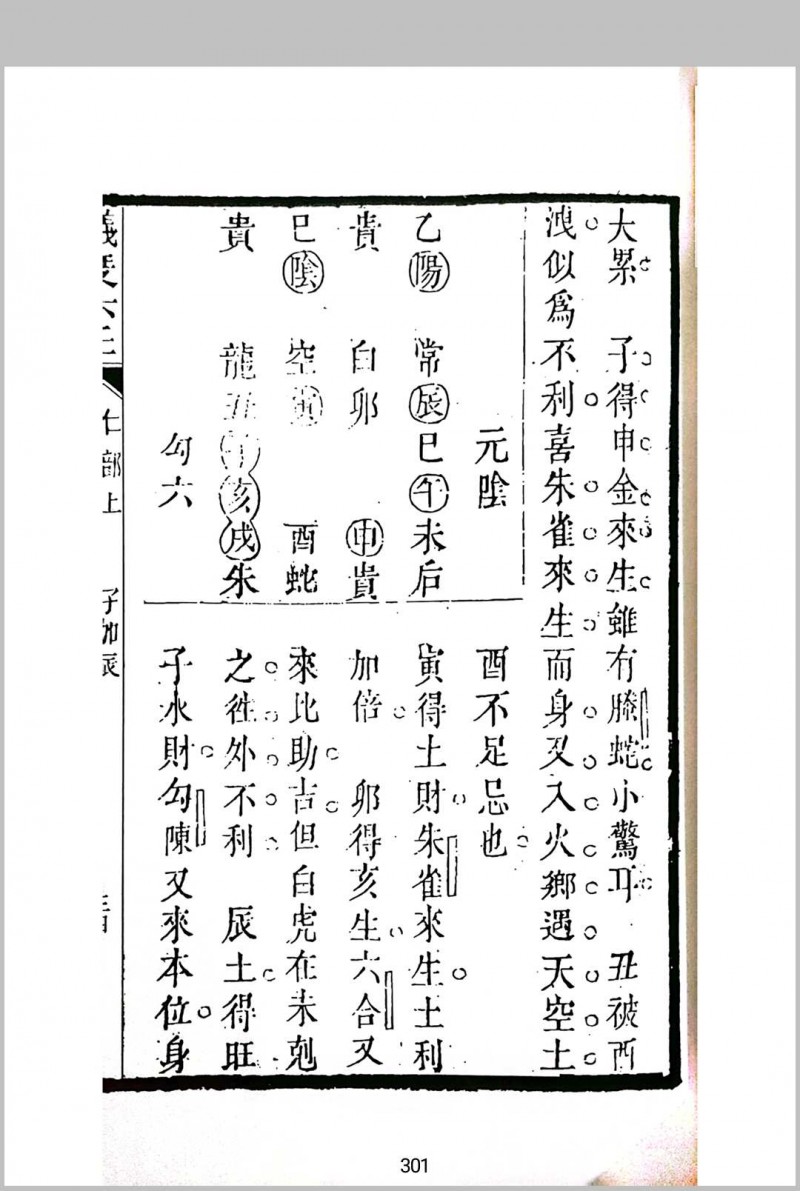 大累　子得申金來生雖有螣蛇小驚耳　丑被酉
洩似爲不利喜朱雀來生而身又入火鄉遇天空土
元陰
酉不足忌也
乙陽　常辰巳午未后
寅得土財朱雀來生土利
貴　白卯　申貴
加倍　卯得亥生六合又
巳陰　空寅　酉蛇
來比助吉但白虎在未剋
貴　龍丑子亥戌朱
之徃外不利　辰土得旺
勾六
子水財勾陳又來本位身
部上　子加辰
301